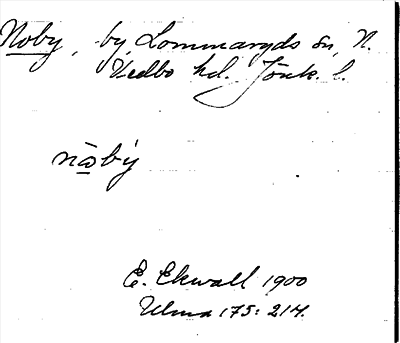 Noby, by, Lommaryds sn, N.
Vedbo hd. Jönk. l.
nω̄bý
E. Ekwall 1900
Ulma 175: 214.